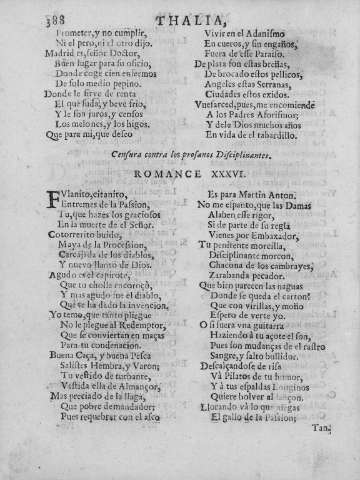 388 THALIA,
Prometer, y no cumplir,
Ni el pero, ni el otro dijo.
Madrid es, señor Doctor,
Buen lugar para su oficio,
Donde coge cien enfermos
De solo medio pepino.
Donde le sirve de renta
El que suda, y beve frio,
Y le son juros, y censos
Los melones, y los higos.
Que para mi, que deseo
Vivir en el Adanismo
En cueros, y sin engaños,
Fuera de esse Paraiso.
De plata son estas breñas,
De brocado estos pellicos,
Angeles estas Serranas,
Ciudades estos exidos.
Vuesarced, pues, me encomiende
A los Padres Aforismos;
Y dele Dios muchos años
En vida de el tabardillo.
Censura contra los profanos Disciplinantes.
ROMANCE XXXVI.
FVlanito, citanito,
Entremes de la Passion,
Tu, que hazes los graciosos
En la muerte de el Señor.
Cotorrerito buido,
Maya de la Procession,
Carcajada de los diablos,
Y nuevo llanto de Dios.
Agudo es el capirote,
Que tu cholla encorozò,
Y mas agudo fue el diablo,
Que te ha dado la invencion.
Yo temo, que tanto pliegue
No le plegue al Redemptor,
Que se convierten en maças
Para tu condenacion.
Buena Caça, y buena Pesca
Salistes Hembra, y Varon;
Tu vestido de turbante,
Vestida ella de Almançor,
Mas preciado de la llaga,
Que pobre demandador:
Pues requebrar con el asco
Es para Martin Anton.
No me espanto, que las Damas
Alaben esse rigor,
Si de parte de su regla
Vienes por Embaxador,
Tu pendiente morcilla,
Disciplinante morcon,
Chacona de los cambrayes,
Zarabanda pecador.
Que bien parecen las naguas
Donde se queda el carton!
Que con virillas, y moño
Espero de verte yo.
O si fuera vna guitarra
Haziendo à tu açote el son,
Pues son mudanças de el rastro
Sangre, y salto bullidor.
Descalçandose de risa
Và Pilatos de tu humor,
Y à tus espaldas Longinos
Quiere bolver al lançon.
Llorando và lo que niegas
El gallo de la Passion;
Tan-